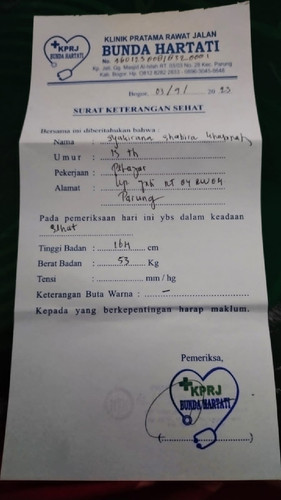 KLINIK PRATAMA RAWAT JALAN
BUNDA HARTATI
KPRJ
BUNDA HARTATI
No.
Kp. Jati Gg. Masjid Al-Ishlah RT 02/03 No. 28 Kec. Parung
Kab. Bogor Hp. 0812 8282 2853 - 0896 3045 5848
Bogor, 03/9/ 20 23
SURAT KETERANGAN SEHAT
Bersama ini diberitahukan bahwa :
Nama : Syakirana Shabira
Umur : 15 th
Pekerjaan : Pelajar
Alamat : RT 04 RW 04
Parung
Pada pemeriksaan hari ini ybs dalam keadaan
Sehat
Tinggi Badan : 164 cm
Berat Badan : 53 Kg
Tensi : mm / hg
Keterangan Buta Warna : -
Kepada yang berkepentingan harap maklum.
Pemeriksa,
KPRJ
BUNDA HARTATI
(....................)